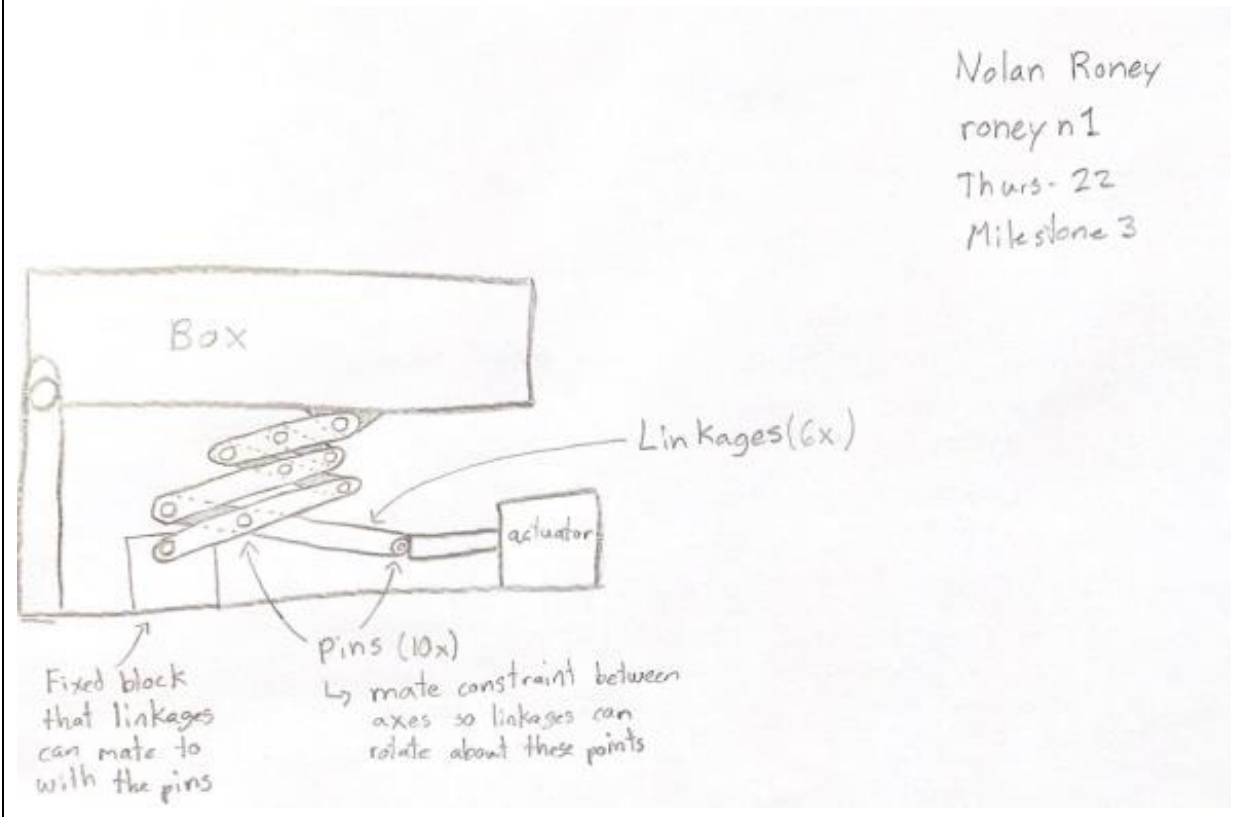 Nolan Roney
roneyn1
Thurs- 22
Milestone 3
Box
Linkages (6x)
actuator
pins (10x)
↳ mate constraint between
axes so linkages can
rotate about these points
Fixed block
that linkages
can mate to
with the pins